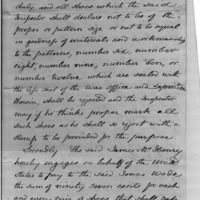 duty, and all Shoes which the said
Inspector shall declare not to be of the
proper or pattern size or not to be equal
in goodness of materials and workmanship
to the patterns, number six, number
eight, number nine, number Ten, or
number twelve which are sealed with
the Seal of the War office and
thereon, shall be rejected and the Inspector
may if he thinks proper mark all
such Shoes as he shall reject with a
Stamp to be provided for the purpose.
Secondly. The said James McHenry
hereby engages on behalf of the United
States to pay to the said Jonas Wade
the sum of ninety seven cents for each
and every pair of Shoes that shall